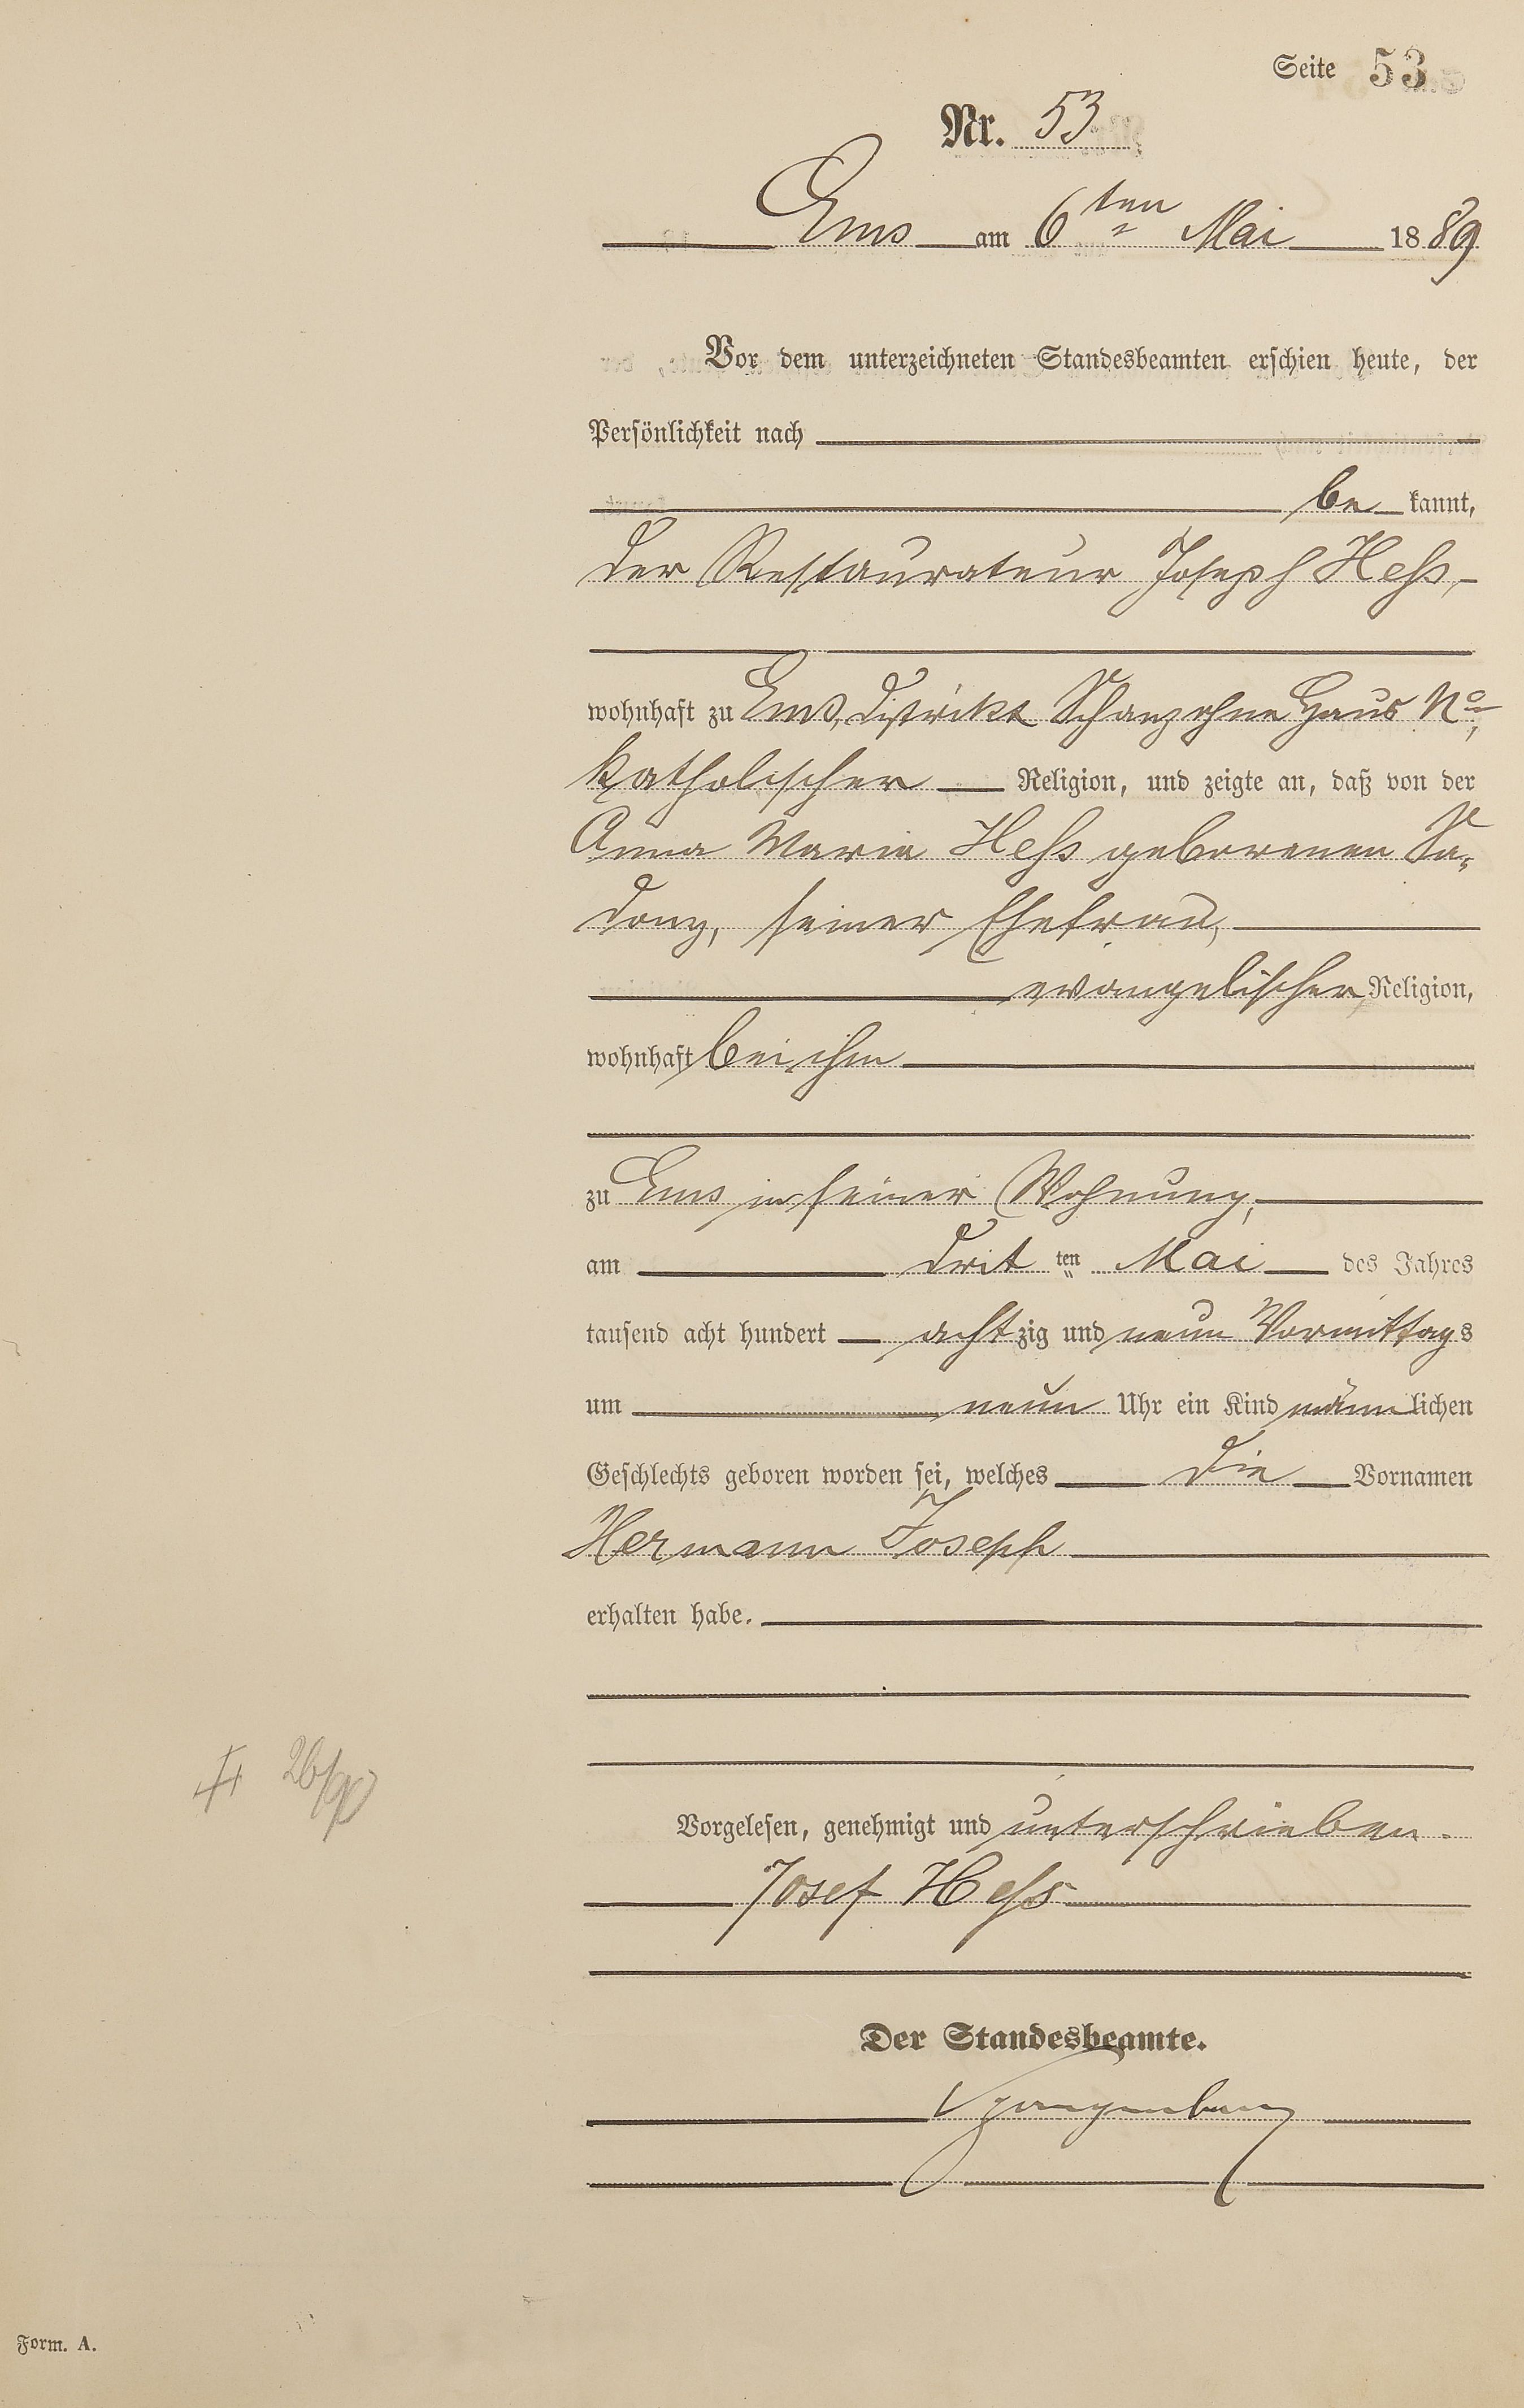 Seite 53
Nr. 53
Ems am 6ten Mai 1889
Vor dem unterzeichneten Standesbeamten erschien heute, der
Persönlichkeit nach
be kannt,
der Restaurateur Joseph Heß,
wohnhaft zu Ems, Distrikt Schanz ohne Haus No,
katholischer Religion, und zeigte an, daß von der
Anna Maria Heß geborenen Sa-
dony, seiner Ehefrau,
evangelischer Religion,
wohnhaft bei ihm
zu Ems in seiner Wohnung,
am drit ten Mai des Jahres
tausend acht hundert achtzig und neun Vormittags
um neun Uhr ein Kind männlichen
Geschlechts geboren worden sei, welches die Vornamen
Hermann Joseph
erhalten habe.
26/90
Vorgelesen, genehmigt und unterschrieben.
Josef Heß
Der Standesbeamte.
Spangenberg
Form. A.